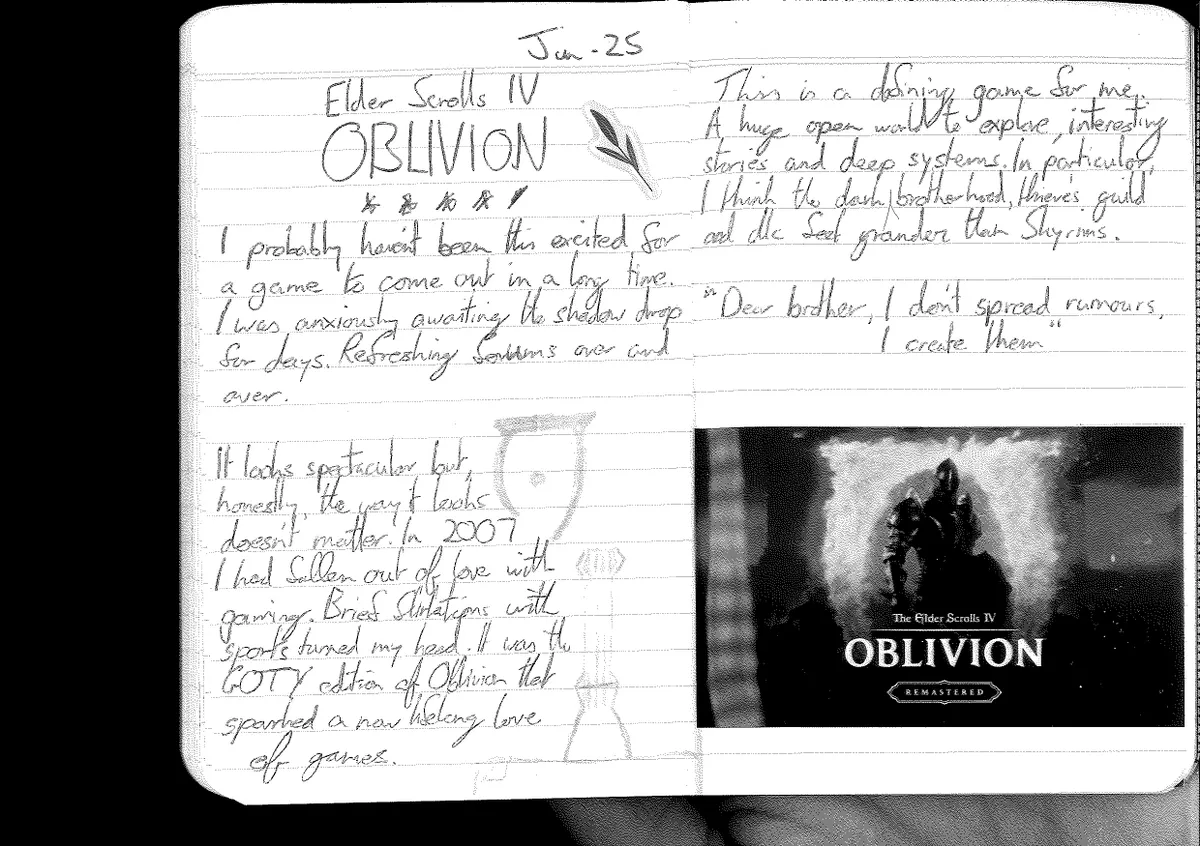 Jun - 25
Elder Scrolls IV
OBLIVION
I probably haven't been this excited for
a game to come out in a long time.
I was anxiously awaiting the shadow drop
for days. Refreshing forums over and
over.
It looks spectacular but,
honestly, the way it looks
doesn't matter. In 2007
I had fallen out of love with
gaming. Brief flirtations with
sports turned my head. It was the
GOTY edition of Oblivion that
sparked a now lifelong love
of games.
This is a defining game for me.
A huge open world to explore, interesting
stories and deep systems. In particular,
I think the dark brotherhood, thieve's guild
and dlc feel grander than Skyrims.
"Dear brother, I don't spread rumours,
I create them"
The Elder Scrolls IV
OBLIVION
REMASTERED